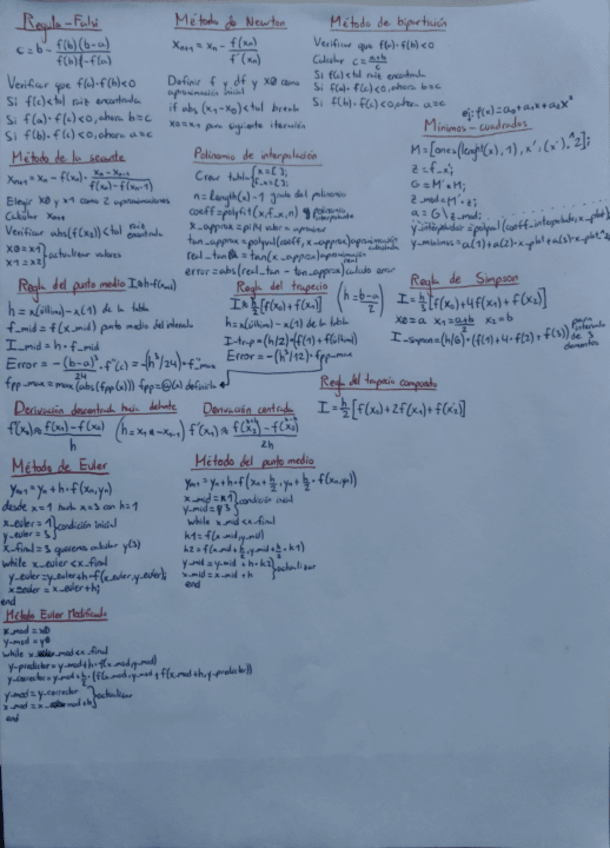 Regula-Falsi
c = b - f(b)(b-a) / f(b)-f(a)
Verificar que f(a)·f(b)<0
Si f(c)<tol raiz encontrada
Si f(a)·f(c)<0, ahora b=c
Si f(b)·f(c)<0, ahora a=c
Método de Newton
Xn+1 = Xn - f(xn) / f'(xn)
Definir f y df y X0 como
aproximación inicial
if abs(x1-x0)<tol break
x0=x1 para siguiente iteración
Método de bipartición
Verificar que f(a)·f(b)<0
Calcular c = a+b /
Si f(c)<tol raiz encontrada
Si f(a)·f(c)<0, ahora b=c
Si f(b)·f(c)<0, ahora a=c
ej: f(x)=a0+a1x+a2x²
Mínimos-cuadrados
M=[ones(length(x),1), x', (x').^2];
z=f_x';
G=M'*M;
z_mod=M'*z;
a=G\z_mod;
y_interpolador=polyval(coeff_interpolado,x-plot)
y_minimos=a(1)+a(2)·x-plot+a(3)·x-plot.^2
Método de la secante
Xn+1 = Xn - f(xn)· xn-xn-1 / f(xn)-f(xn-1)
Elegir x0 y x1 como 2 aproximaciones
Calcular Xn+1
Verificar abs(f(x2))<tol raiz encontrada
x0=x1
x1=x2 } actualizar valores
Polinomio de interpolación
Crear tabla { x=[ ];
f_x=[ ];
n=length(x)-1 grado del polinomio
coeff=polyfit(x,f_x,n) polinomio
interpolante
x_approx=pi/4 valor a aproximar
tan_approx=polyval(coeff,x_approx) aproximación
calculada
real_tan=tan(x_approx) aproximación
real
error=abs(real_tan-tan_approx) calculo error
Regla del punto medio I≈h·f(xmed)
h=x(último)-x(1) de la tabla
f_mid=f(x_mid) punto medio del intervalo
I_mid=h·f_mid
Error = -(b-a)³/24 · f''(c) = -(h³/24)·f''max
fpp_max=max(abs(fpp(x))) fpp=@(x) definirla
Regla del trapecio
I≈ h/2 [f(x0)+f(x1)] (h= b-a / 2)
h=x(último)-x(1) de la tabla
I-trap=(h/2)·(f(1)+f(último))
Error=-(h³/12)·fpp_max
Regla de Simpson
I= h/3 [f(x0)+4f(x1)+f(x2)]
x0=a x1= a+b / 2 x2=b
I-simpson=(h/6)·(f(1)+4·f(2)+f(3)) para intervalo
de 3
elementos
Regla del trapecio compuesto
I= h/2 [f(x0)+2f(x1)+f(x2)]
Derivación descentrada hacia delante
f'(x0)≈ f(x1)-f(x0) / h (h=xn-xn-1)
Derivación centrada
f'(x1)≈ f(x2)-f(x0) / 2h
Método de Euler
yn+1=yn+h·f(xn,yn)
desde x=1 hasta x=3 con h=1
x_euler=1
y_euler=3 } condición inicial
x_final=3 queremos calcular y(3)
while x_euler<x_final
y_euler=y_euler+h·f(x_euler,y_euler);
x_euler=x_euler+h;
end
Método del punto medio
yn+1=yn+h·f(xn+ h/2, yn+ h/2 ·f(xn,yn))
x_mid=x1
y_mid=y3 } condición inicial
while x_mid<x_final
k1=f(x_mid,y_mid)
k2=f(x_mid+ h/2, y_mid+ h/2 ·k1)
y_mid=y_mid+h·k2
x_mid=x_mid+h } actualizar
end
Método Euler Modificado
x_mod=x0
y_mod=y0
while x_mod<x_final
y-predictor=y_mod+h·f(x_mod,y_mod)
y_corrector=y_mod+ h/2 ·(f(x_mod,y_mod+f(x_mod+h,y-predictor))
y_mod=y_corrector
x_mod=x_mod+h } actualizar
end